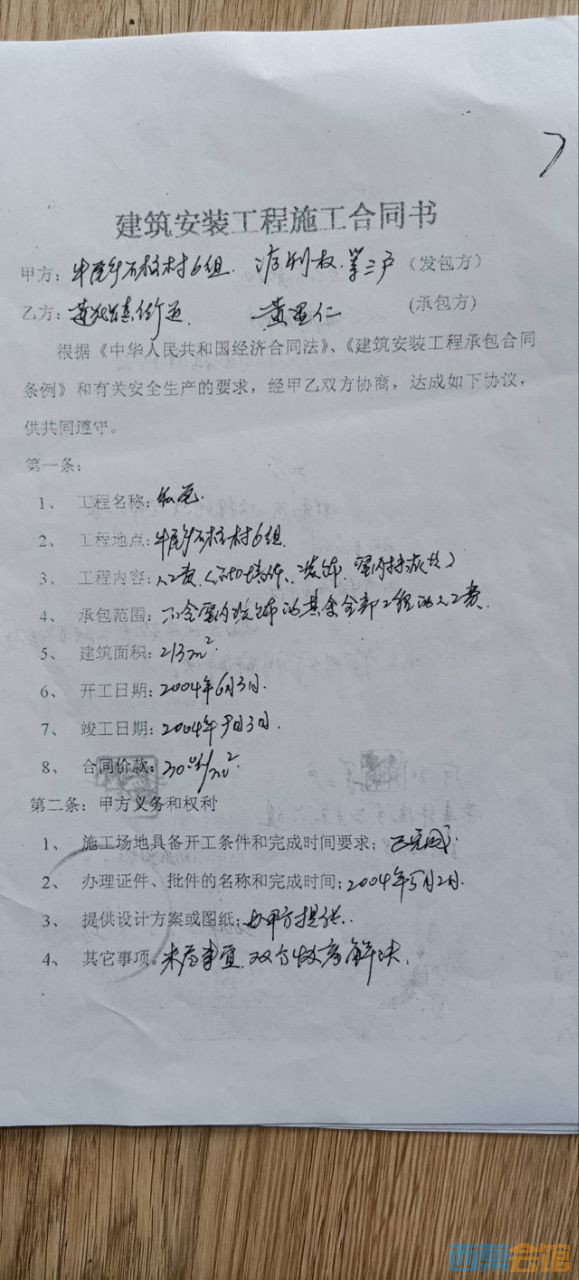 建筑安装工程施工合同书
甲方：牛尾乡石柱村6组. 权.等三户（发包方）
乙方： 黄显仁 (承包方)
根据《中华人民共和国经济合同法》、《建筑安装工程承包合同
条例》和有关安全生产的要求，经甲乙双方协商，达成如下协议，
供共同遵守。
第一条：
1、 工程名称：私宅.
2、 工程地点：牛尾乡石柱村6组.
3、 工程内容：人工费（ 装饰.室内 ）
4、 承包范围：不含室内装饰的其余全部工程的人工费.
5、 建筑面积：213m².
6、 开工日期：2004年6月3日.
7、 竣工日期：2004年9月3日.
8、 合同价款： /m²
第二条：甲方义务和权利
1、 施工场地具备开工条件和完成时间要求：已完成.
2、 办理证件、批件的名称和完成时间：2004年5月2日.
3、 提供设计方案或图纸：由甲方提供.
4、 其它事项。未尽事宜.双方 解决.
西祠会馆